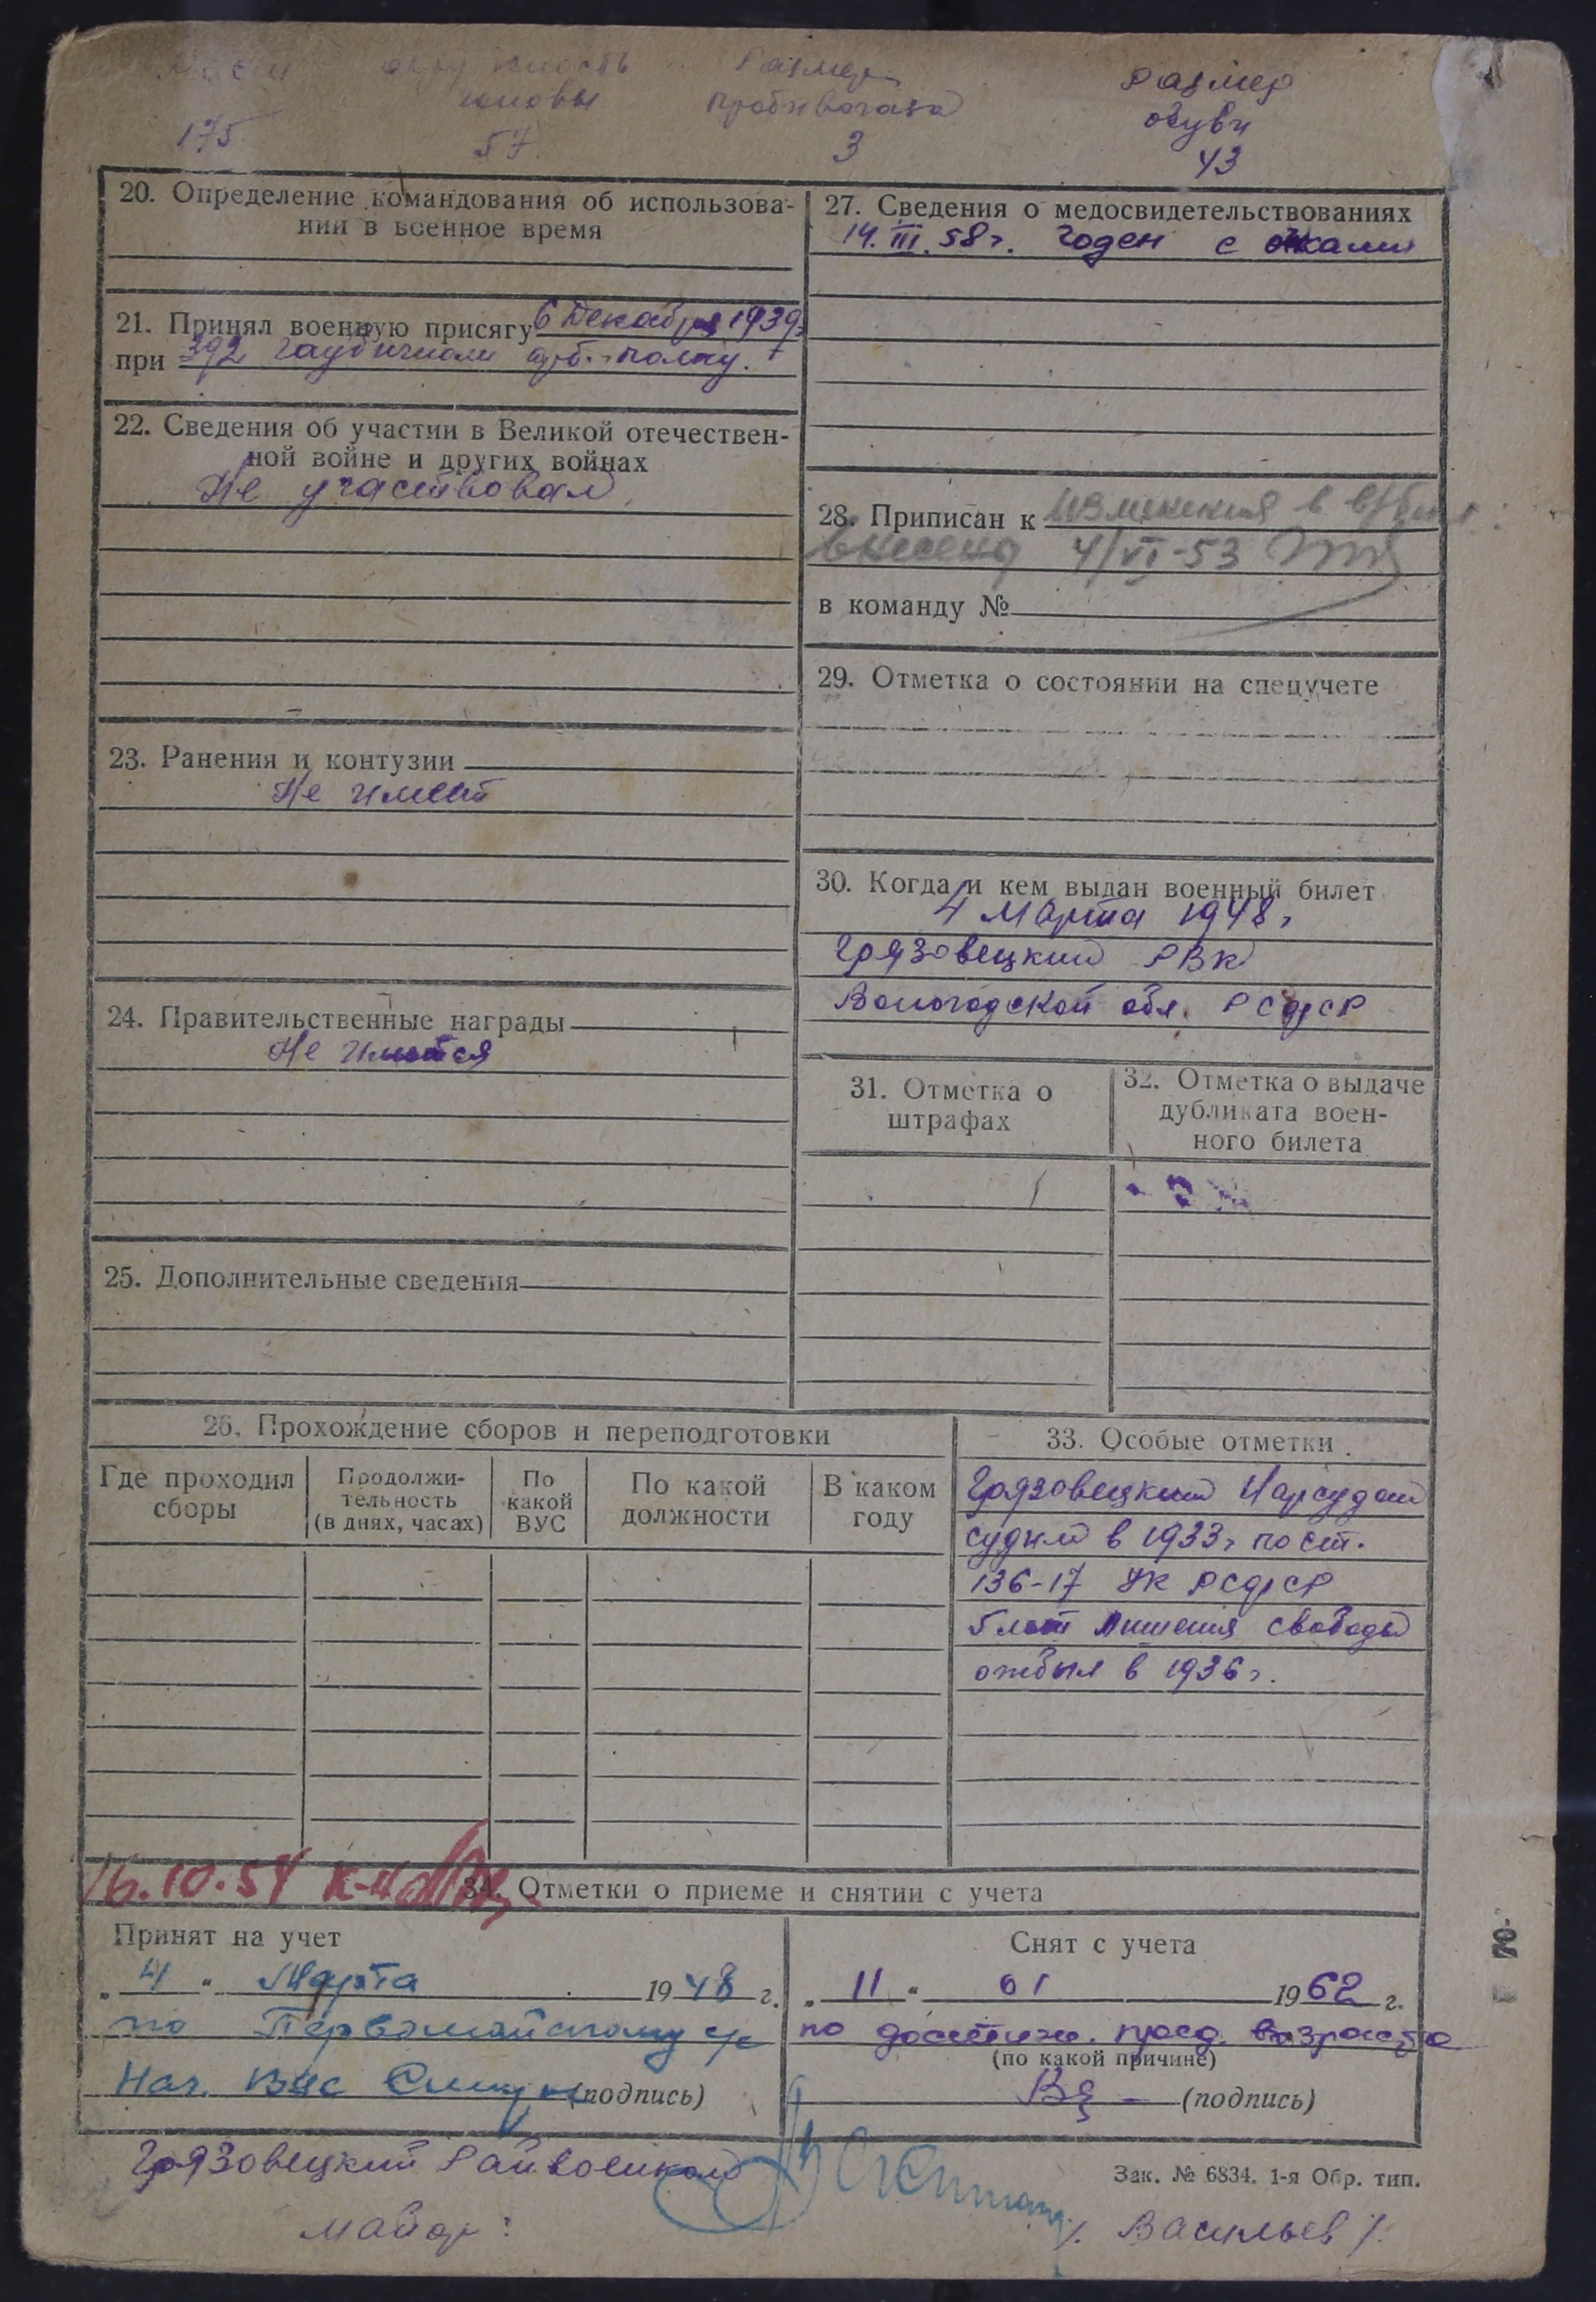 окружность
головы
57
175
Размер
противогаза
3
Размер
обуви
43
20. Определение командования об использова-
нии в военное время
21. Принял военную присягу 6 Декабря 1939г
при 392 гаубичном арт. полку.
22. Сведения об участии в Великой отечествен-
ной войне и других войнах
Не участвовал
23. Ранения и контузии
Не имеет
24. Правительственные награды
Не имеются
25. Дополнительные сведения
27. Сведения о медосвидетельствованиях
14.III.58г. Годен с очками
28. Приписан к изменения в
внесены 4/VI-53
в команду №
29. Отметка о состоянии на спецучете
30. Когда и кем выдан военный билет
4 Марта 1948г
Грязовецкий РВК
Вологодской обл. РСФСР
31. Отметка о
штрафах
32. Отметка о выдаче
дубликата воен-
ного билета
26. Прохождение сборов и переподготовки
Где проходил
сборы
Продолжи-
тельность
(в днях, часах)
По
какой
ВУС
По какой
должности
В каком
году
33. Особые отметки
Грязовецкий Нарсудом
судим в 1933г по ст.
136-17 УК РСФСР
5 лет лишения свободы
отбыл в 1936г.
16.10.54
34. Отметки о приеме и снятии с учета
Принят на учет
„ 4 “ Марта 1948 г.
по Первомайскому с/с
Нач. ВУС (подпись)
Снят с учета
„ 11 “ 01 1962 г.
по достиж. пред. возраста
(по какой причине)
(подпись)
Грязовецкий Райвоенком
майор:
/. Васильев /.
Зак. № 6834. 1-я Обр. тип.